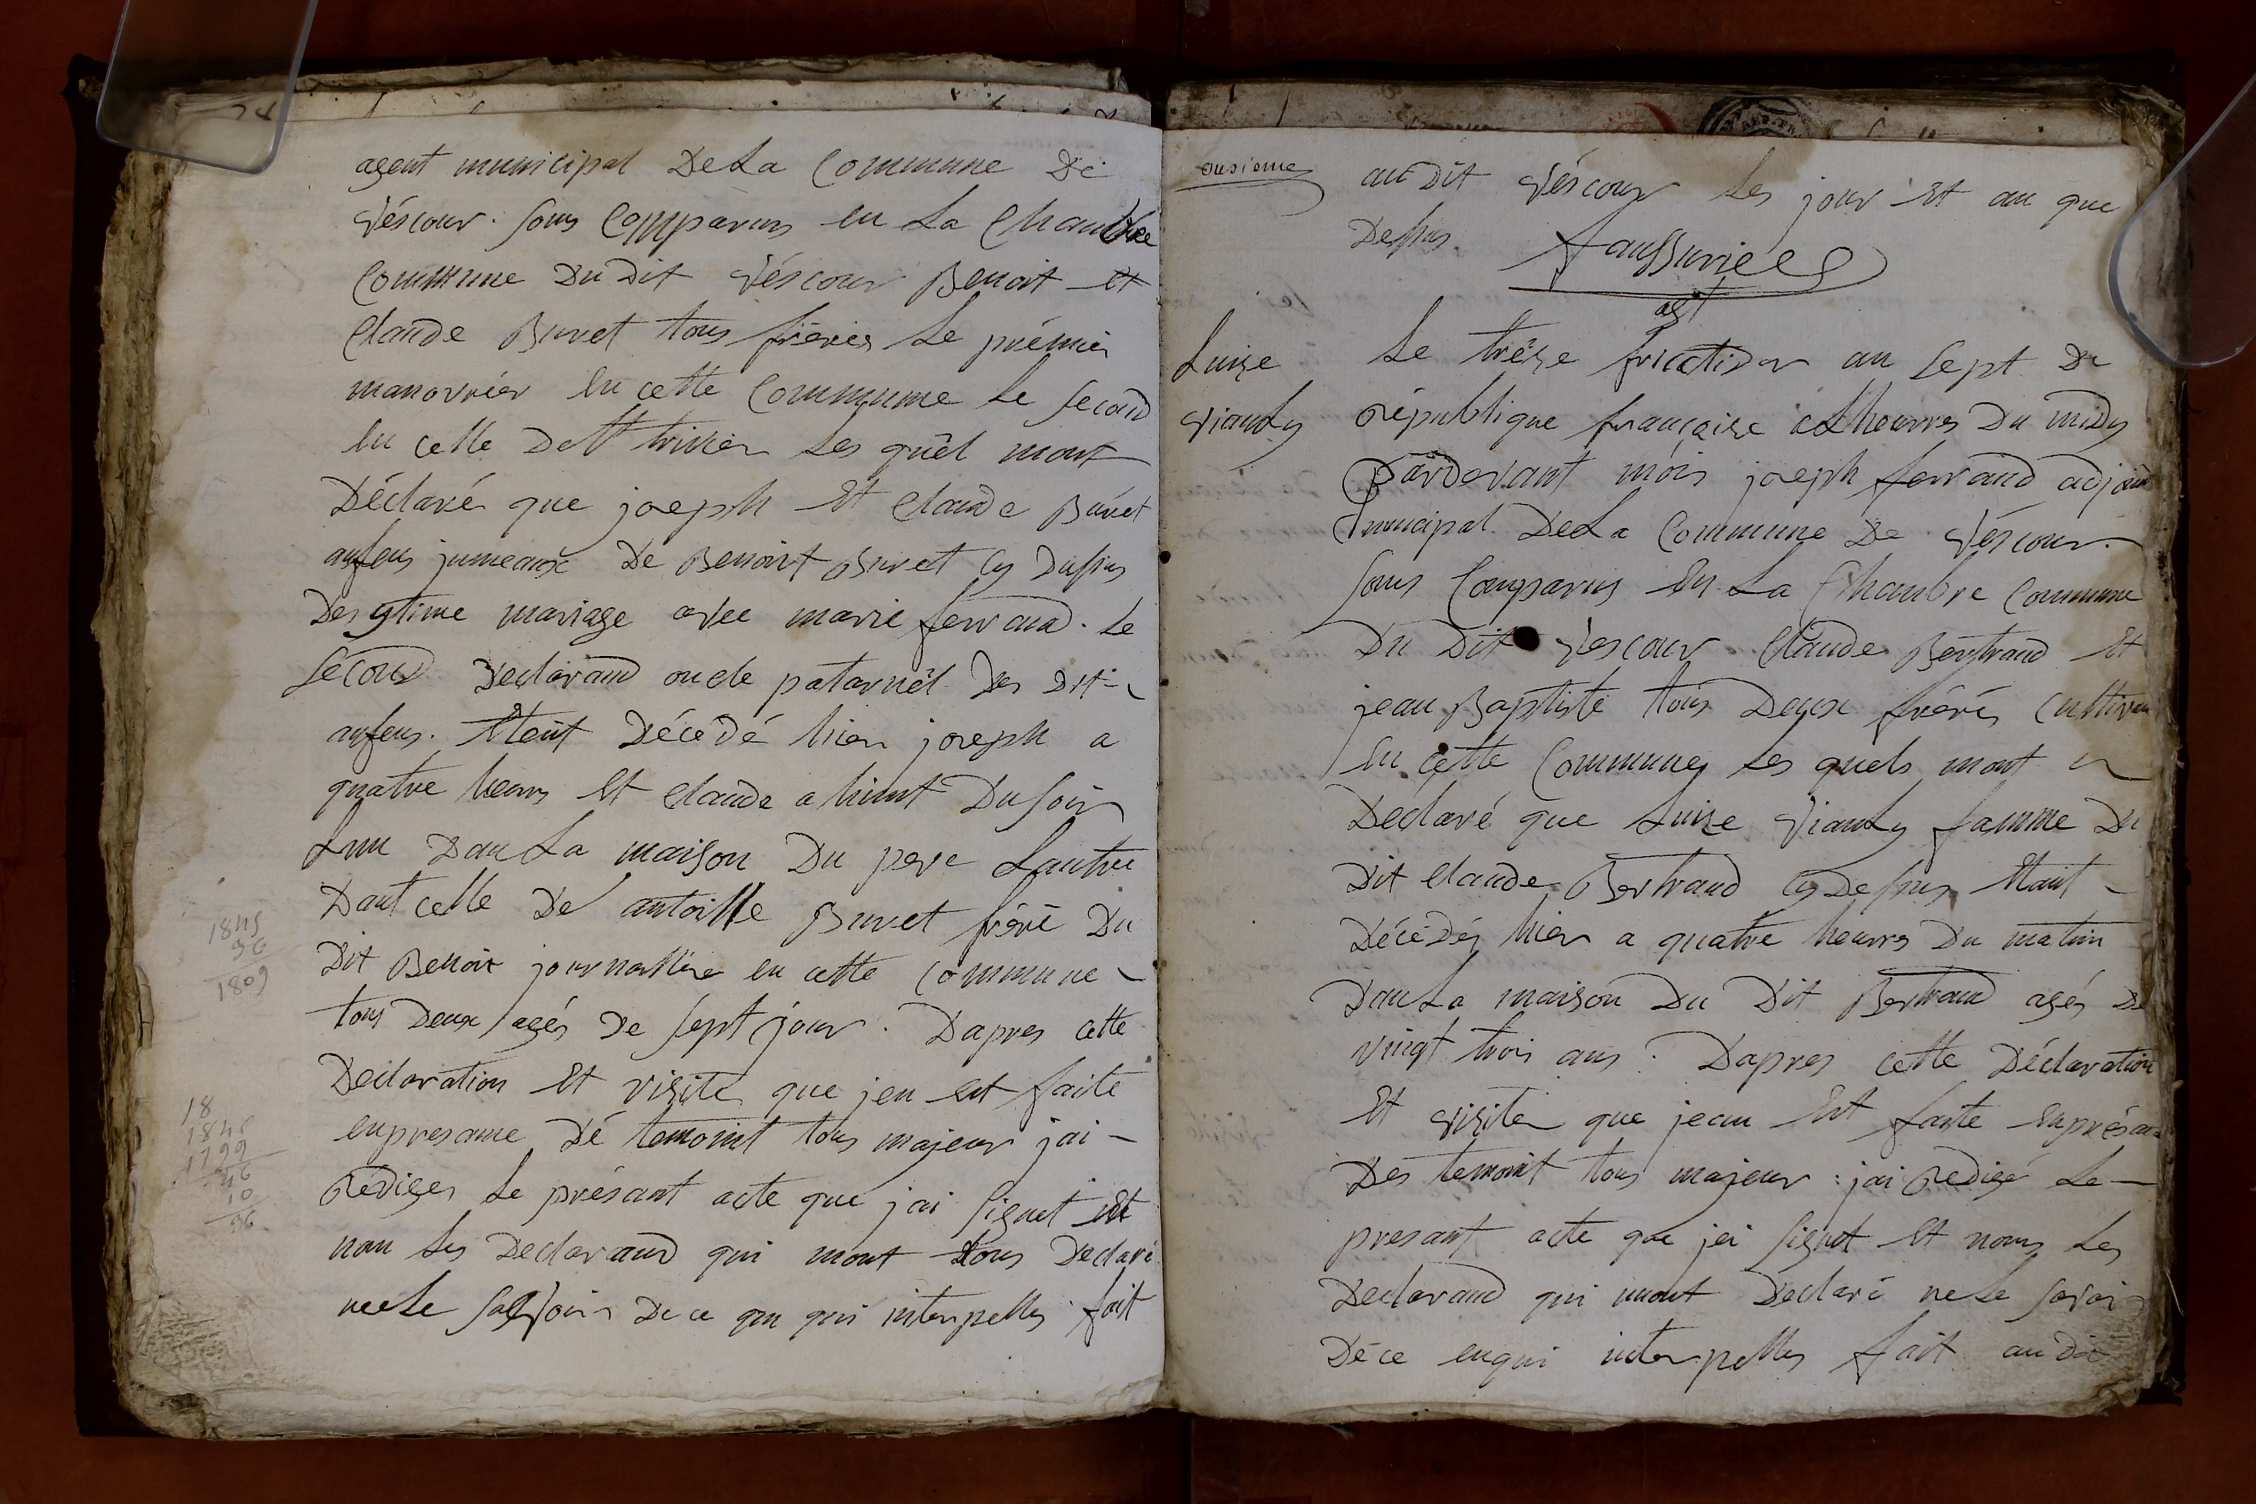 agent municipal De La Commune De
véscour. sons Comparus en La Chambre
Commune Du Dit véscour Benoit et
Claude Buvet tous frérés Le prémier
manovriér en cette Commune Le second
en celle De st trivier Les quêl mont
Déclaré que joseph et Claude Buvet
anfens jumeaux De Benoit Buvet Cy Dessus
De gitime mariage avec marie ferrand. Le
second Declarand oncle patarnêl Des Dit
anfens. Etoit Décédé hier joseph a
quatre heurs et Claude a huit Du soir
Lun Dan La maison Du pere Lautre
Dant celle De antoille Buvet frére Du
Dit Benoit journallier en cette Commune
tous Deux agés De sept jour. Dapres cette
Declaration et visite que jen est faite
enpresame Dé temoint tous majeur jai
Rédigér Le présant acte que jai signet et
non Les Declarand qui mont tous Declaré
ne Le savoir De ce qui interpelles fait
1845
36
1809
18
1845
1799
46
10
36
onsieme
audit véscour Les jour et an que
Dessus.
agt
Luise
vianLy
Le trêse fructidor an sept De
République française a heurres Du midy
Pardevant mois joseph ferrand adjoint
municipal De La Commune De véscour.
sons Comparus en La Chambre Commune
Du Dit vescour Claude Bertrand et
jean Baptiste tous Deux frérés Cultiveur
en cette Commune Les quels mont
Déclaré que Luise vianLy famme Du
Dit Claude Bertrand Cy Dessus Etant
Décédés hier a quatre heurres Du matin
Dan La maison Du Dit Bertrand agés De
vingt trois ans. Dapres cette Déclaration
et visite que jean est faite enprésan
Des temoint tous majeur: jai Redigé Le
presant acte que jai signet et nons Les
Declarand qui mont Declaré ne Le savoir
Dé ce enqui interpelles fait au Dit